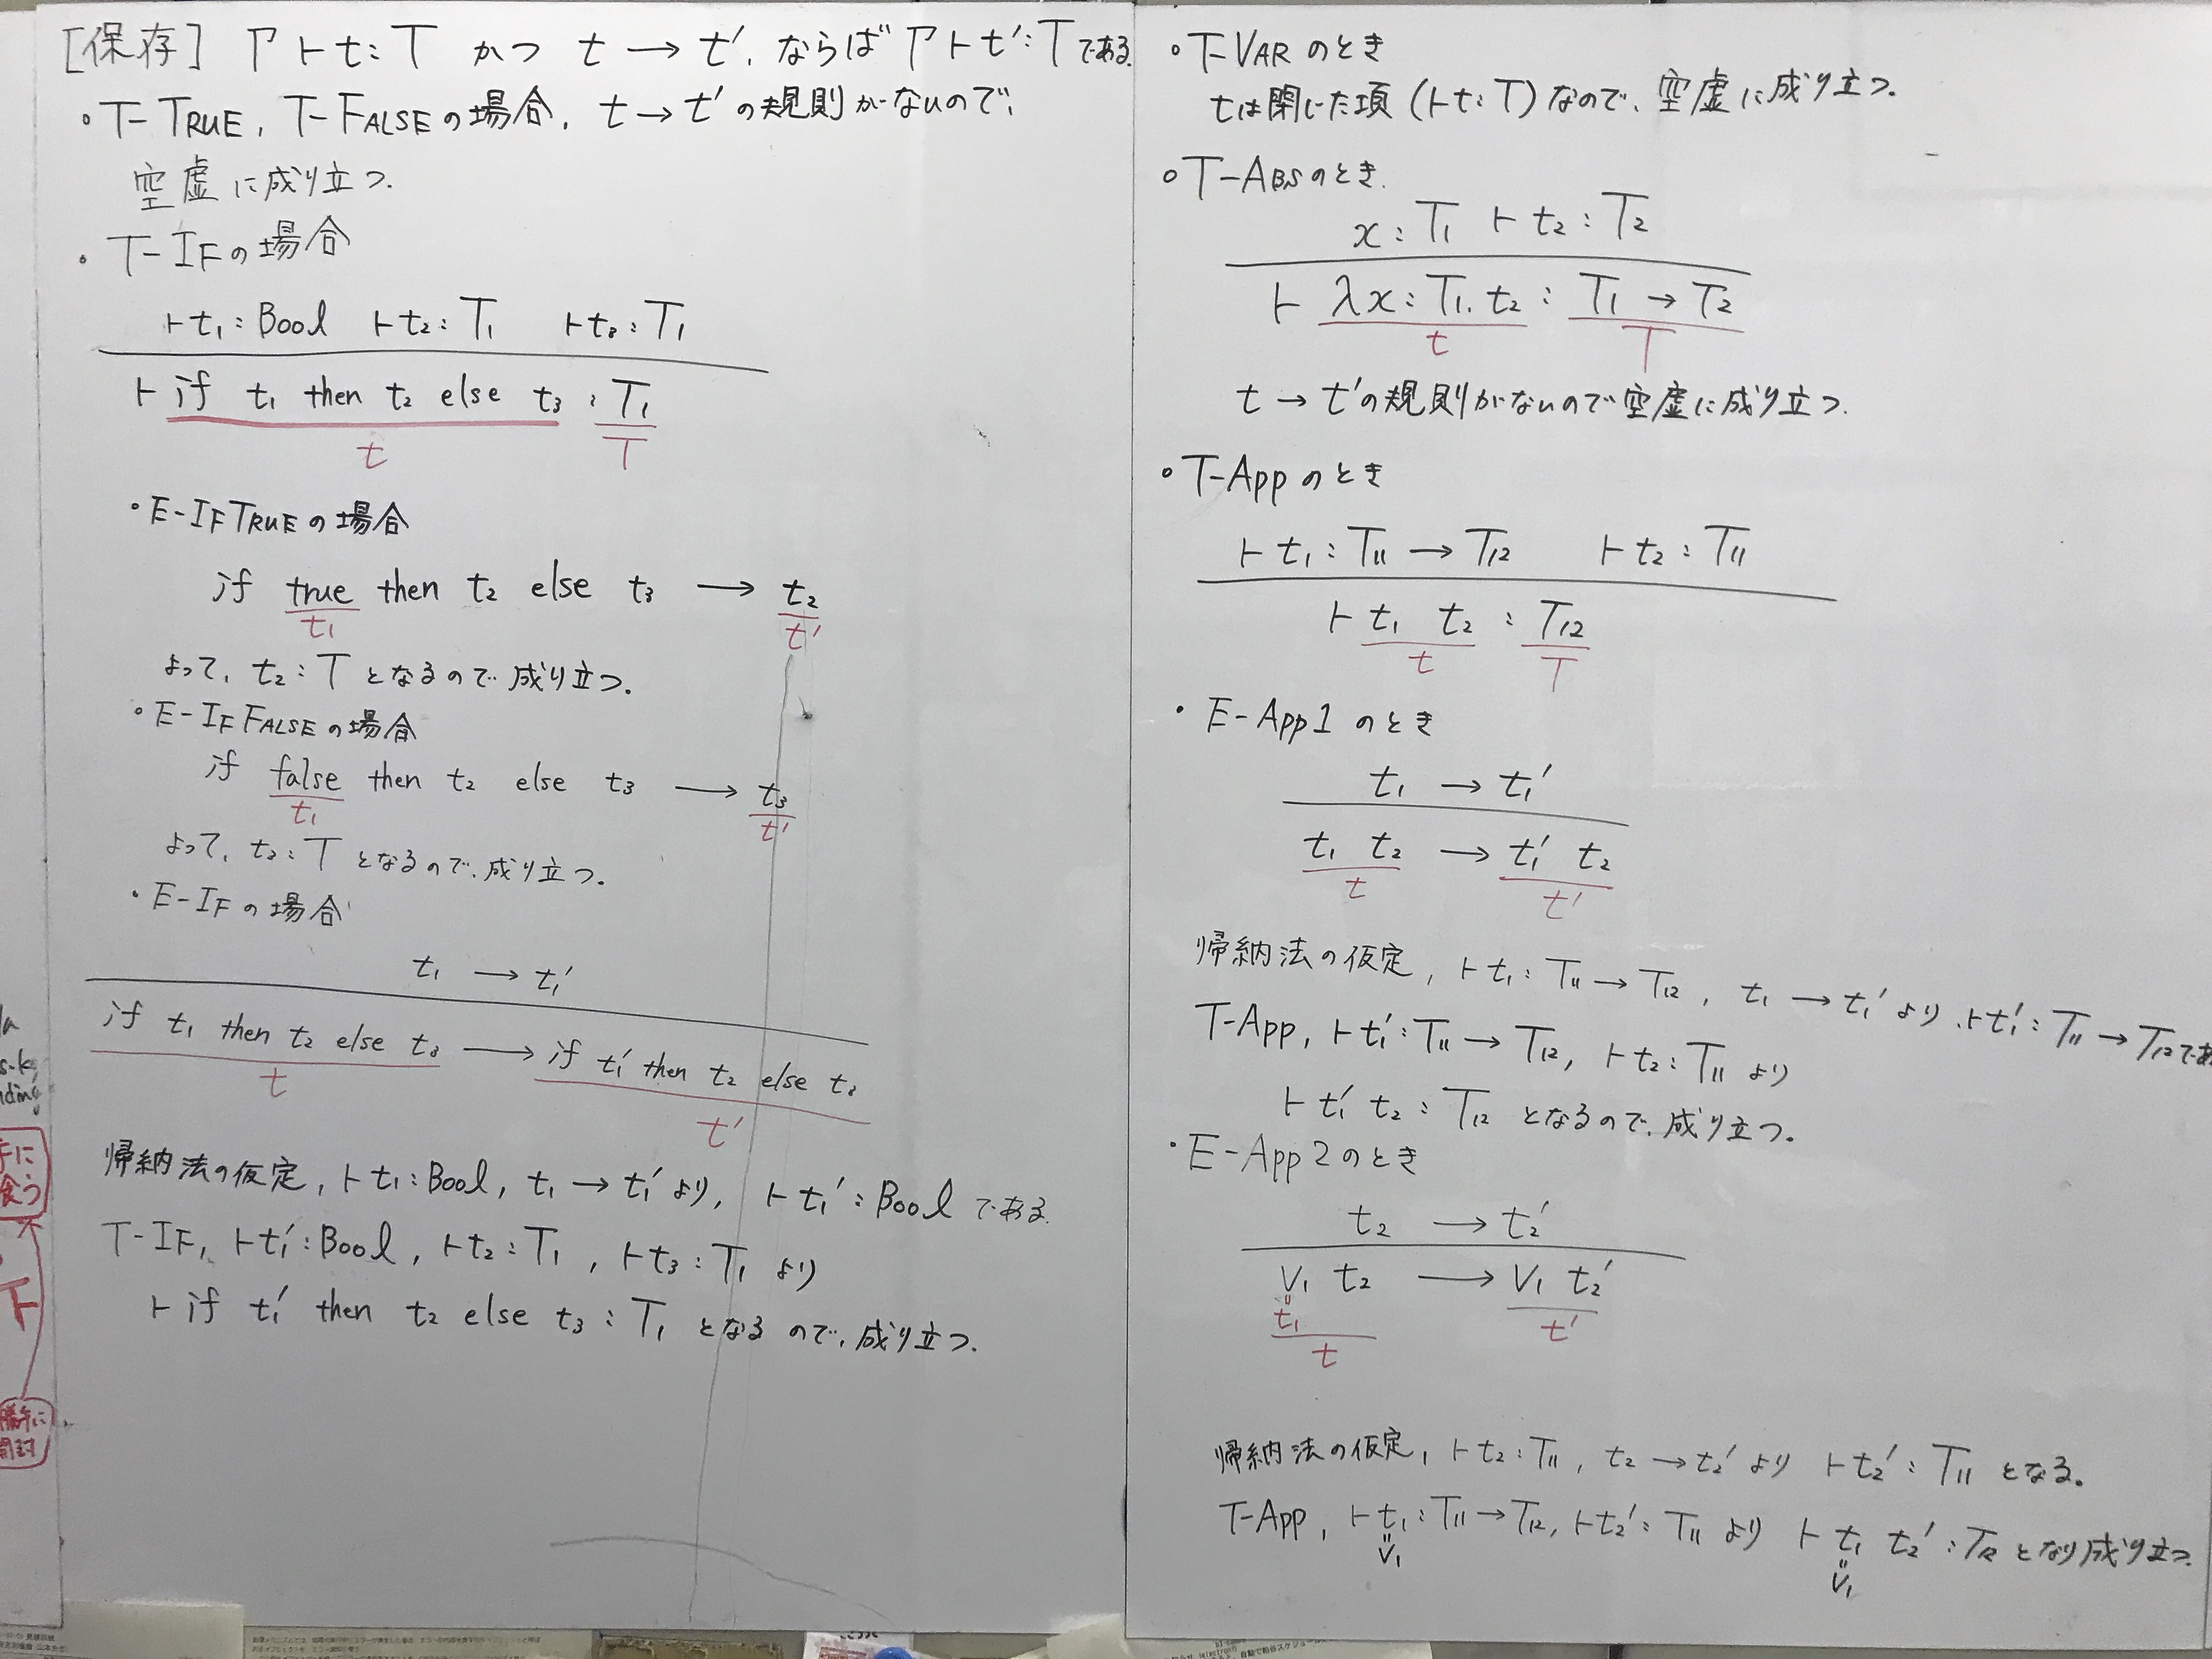 [保存] Γ ⊢ t : T かつ t → t′, ならば Γ ⊢ t′ : T である.
• T-TRUE, T-FALSEの場合, t → t′の規則がないので,
空虚に成り立つ.
• T-IFの場合
⊢ t₁ : Bool ⊢ t₂ : T₁ ⊢ t₃ : T₁
⊢ if t₁ then t₂ else t₃ : T₁
t T
• E-IFTRUEの場合
if true then t₂ else t₃ → t₂
t₁ t′
よって, t₂ : T となるので成り立つ.
• E-IFFALSEの場合
if false then t₂ else t₃ → t₃
t₁ t′
よって, t₂ : T となるので, 成り立つ.
• E-IFの場合
t₁ → t₁′
if t₁ then t₂ else t₃ → if t₁′ then t₂ else t₃
t t′
帰納法の仮定, ⊢ t₁ : Bool, t₁ → t₁′より, ⊢ t₁′ : Bool である.
T-IF, ⊢ t₁′ : Bool, ⊢ t₂ : T₁, ⊢ t₃ : T₁ より
⊢ if t₁′ then t₂ else t₃ : T₁ となるので, 成り立つ.
手に
食う
勝手に
開封
∘ T-VARのとき
tは閉じた項 (⊢ t : T) なので, 空虚に成り立つ.
∘ T-ABSのとき.
x : T₁ ⊢ t₂ : T₂
⊢ λx : T₁. t₂ : T₁ → T₂
t T
t → t′の規則がないので空虚に成り立つ.
∘ T-Appのとき
⊢ t₁ : T₁₁ → T₁₂ ⊢ t₂ : T₁₁
⊢ t₁ t₂ : T₁₂
t T
• E-App1のとき
t₁ → t₁′
t₁ t₂ → t₁′ t₂
t t′
帰納法の仮定, ⊢ t₁ : T₁₁ → T₁₂, t₁ → t₁′より, ⊢ t₁′ : T₁₁ → T₁₂であ
T-App, ⊢ t₁′ : T₁₁ → T₁₂, ⊢ t₂ : T₁₁ より
⊢ t₁′ t₂ : T₁₂ となるので, 成り立つ.
• E-App2のとき
t₂ → t₂′
V₁ t₂ → V₁ t₂′
=
t₁ t′
t
帰納法の仮定, ⊢ t₂ : T₁₁, t₂ → t₂′より ⊢ t₂′ : T₁₁ となる.
T-App, ⊢ t₁ : T₁₁ → T₁₂, ⊢ t₂′ : T₁₁ より ⊢ t₁ t₂′ : T₁₂ となり成り立つ.
= =
V₁ V₁